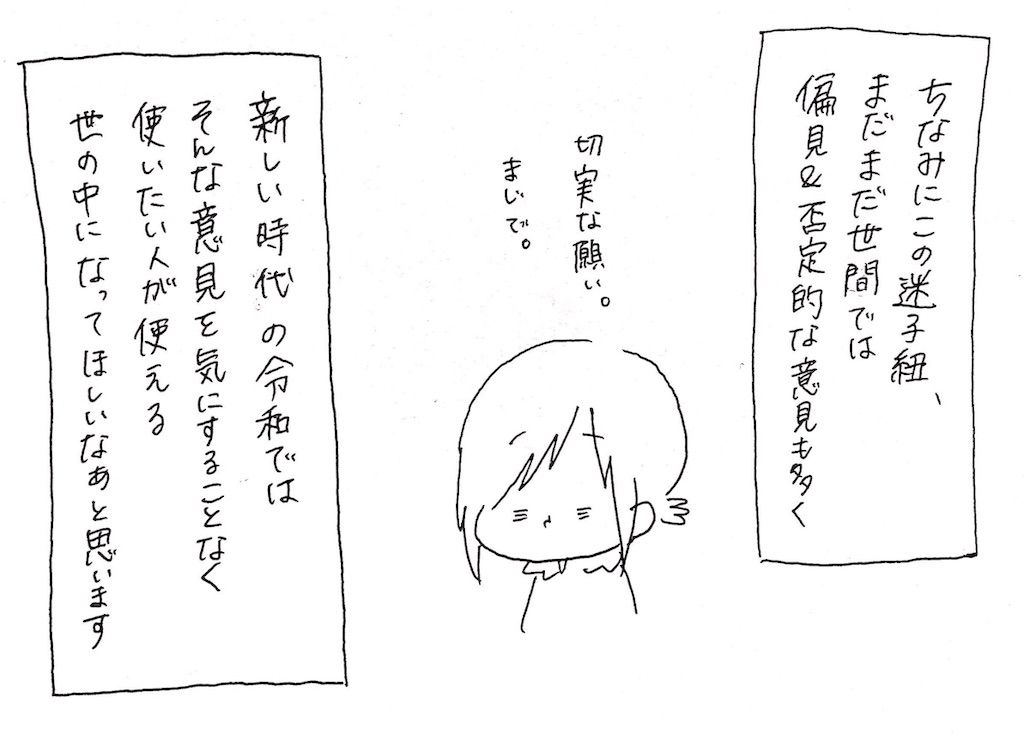 ちなみにこの迷子紐、
まだまだ世間では
偏見&否定的な意見も多く
切実な願い。
まじで。
新しい時代の令和では
そんな意見を気にすることなく
使いたい人が使える
世の中になってほしいなぁと思います